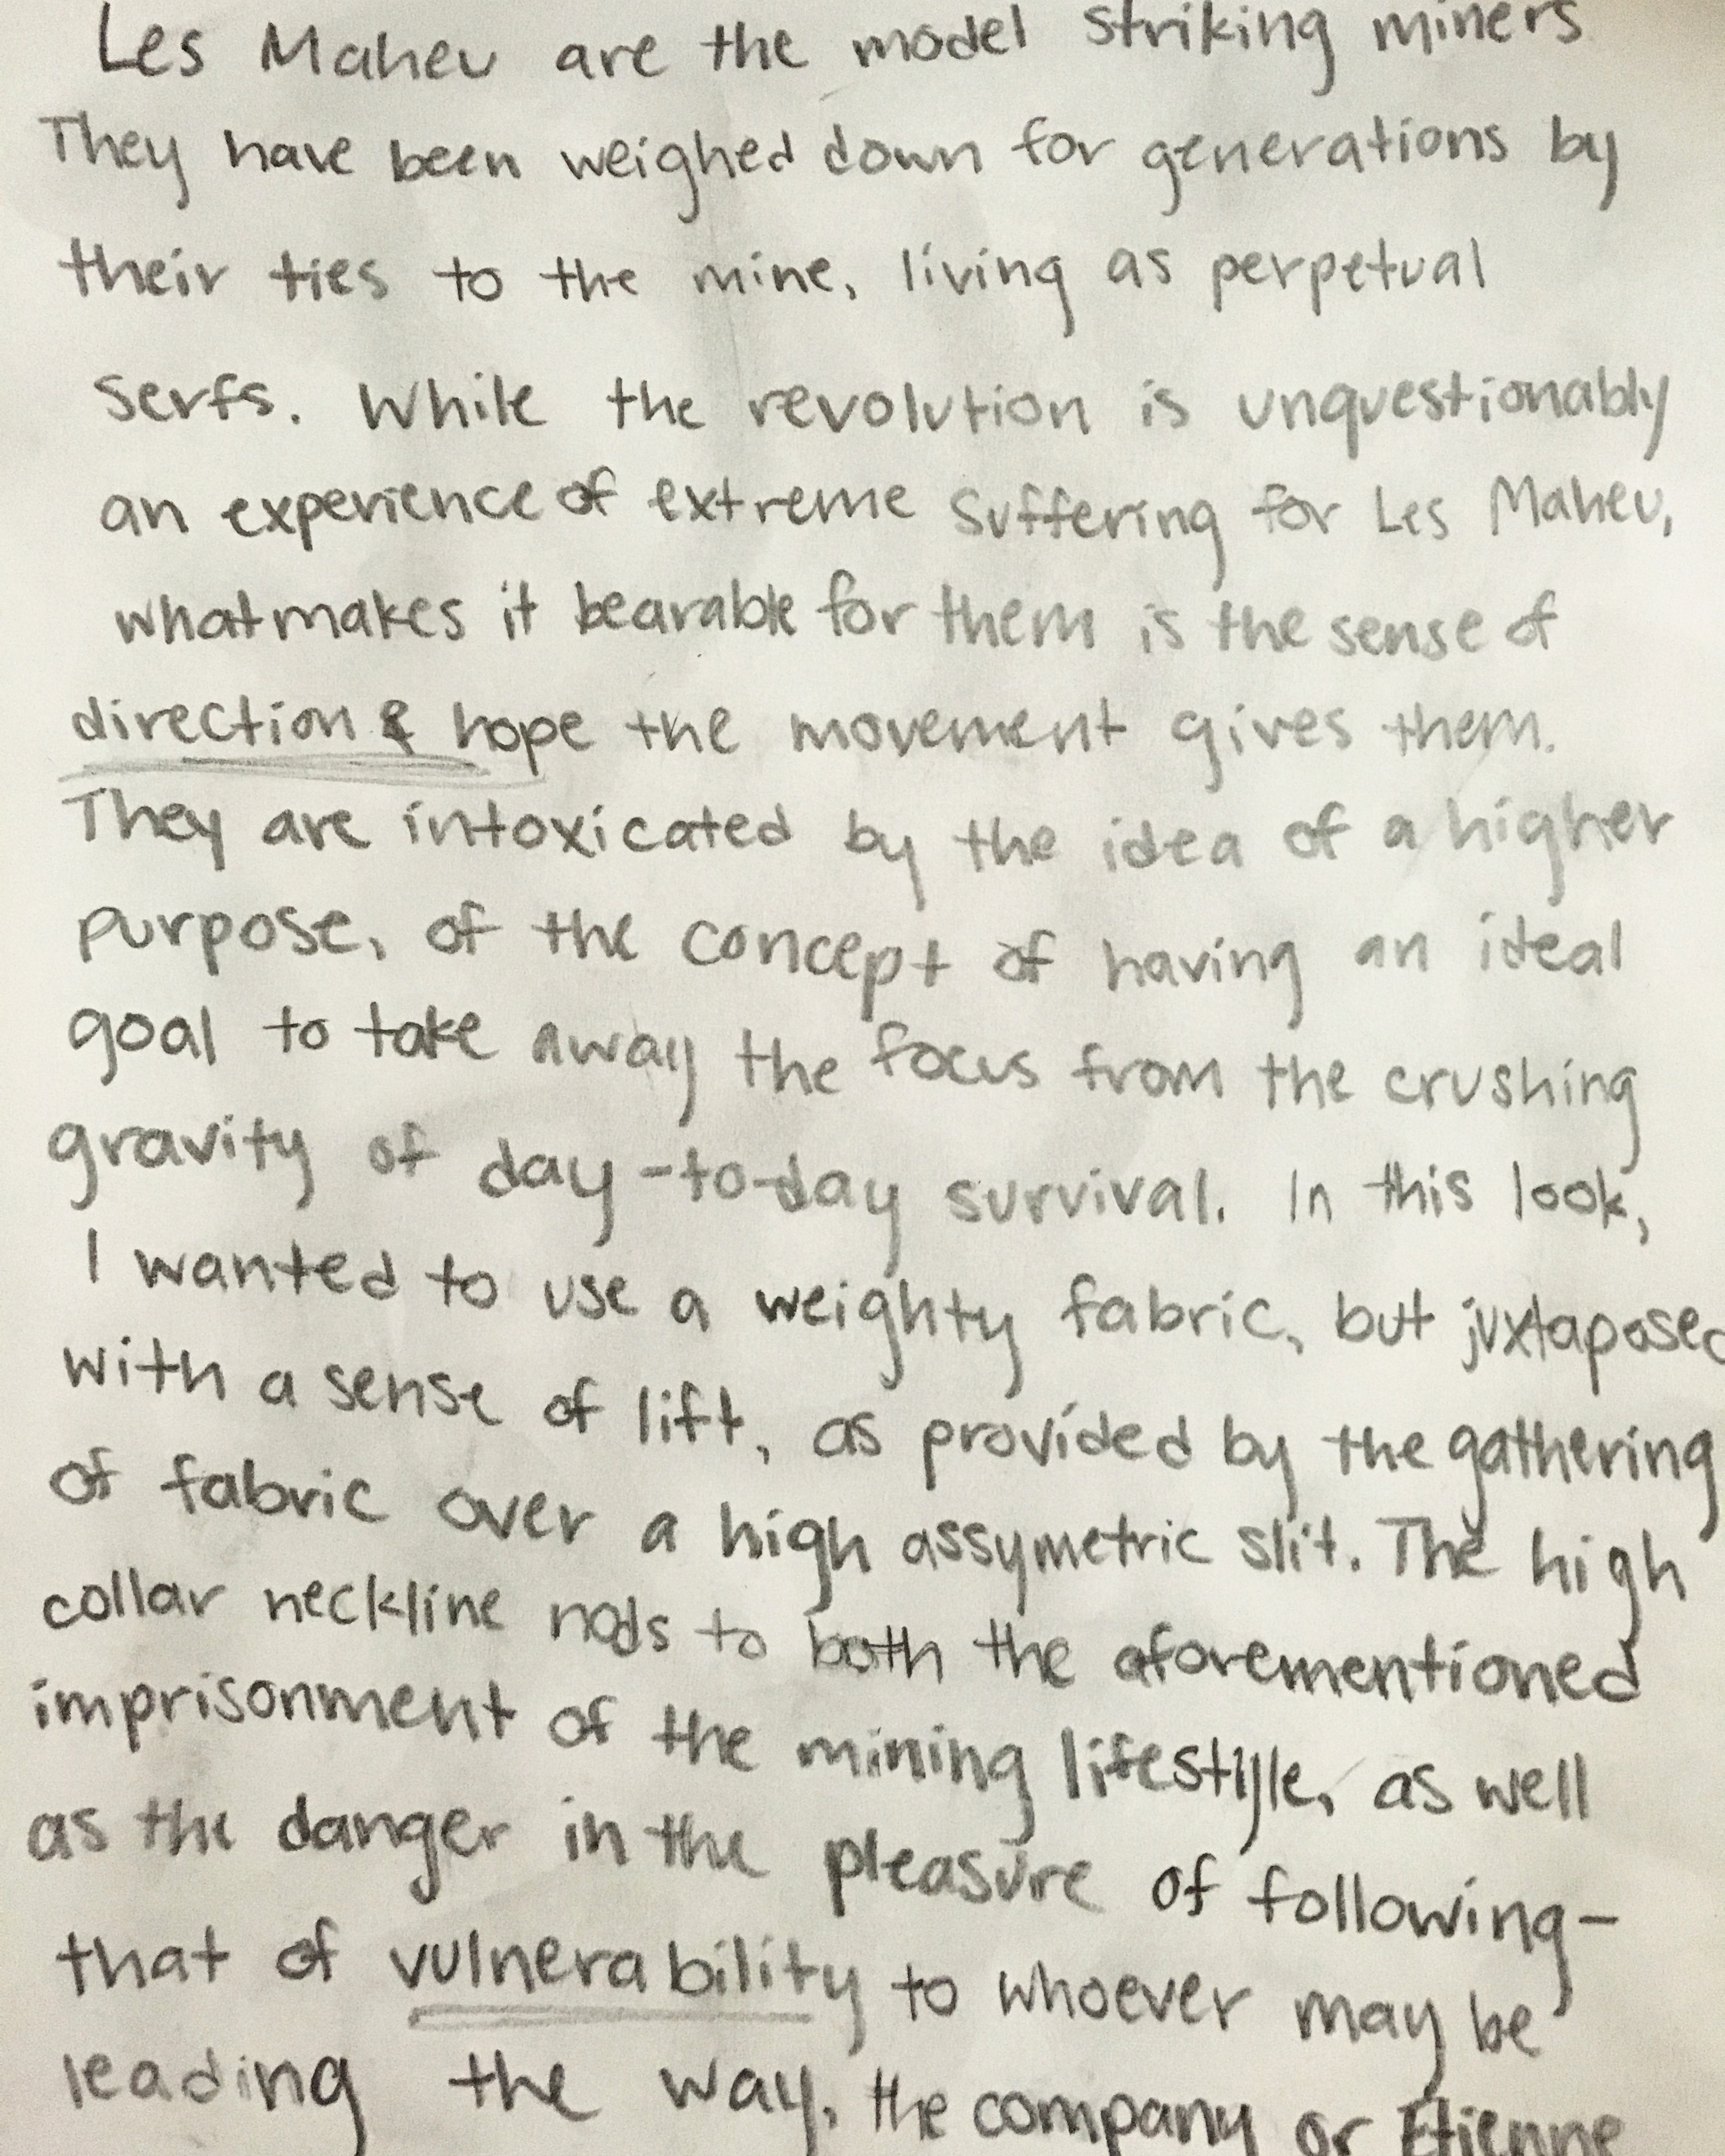 Les Maheu are the model striking miners
They have been weighed down for generations by
their ties to the mine, living as perpetual
serfs. While the revolution is unquestionably
an experience of extreme suffering for Les Maheu,
what makes it bearable for them is the sense of
direction & hope the movement gives them.
They are intoxicated by the idea of a higher
purpose, of the concept of having an ideal
goal to take away the focus from the crushing
gravity of day-to-day survival. In this look,
I wanted to use a weighty fabric, but juxtaposed
with a sense of lift, as provided by the gathering
of fabric over a high assymetric slit. The high
collar neckline nods to both the aforementioned
imprisonment of the mining lifestyle, as well
as the danger in the pleasure of following-
that of vulnerability to whoever may be
leading the way, the company or Etienne